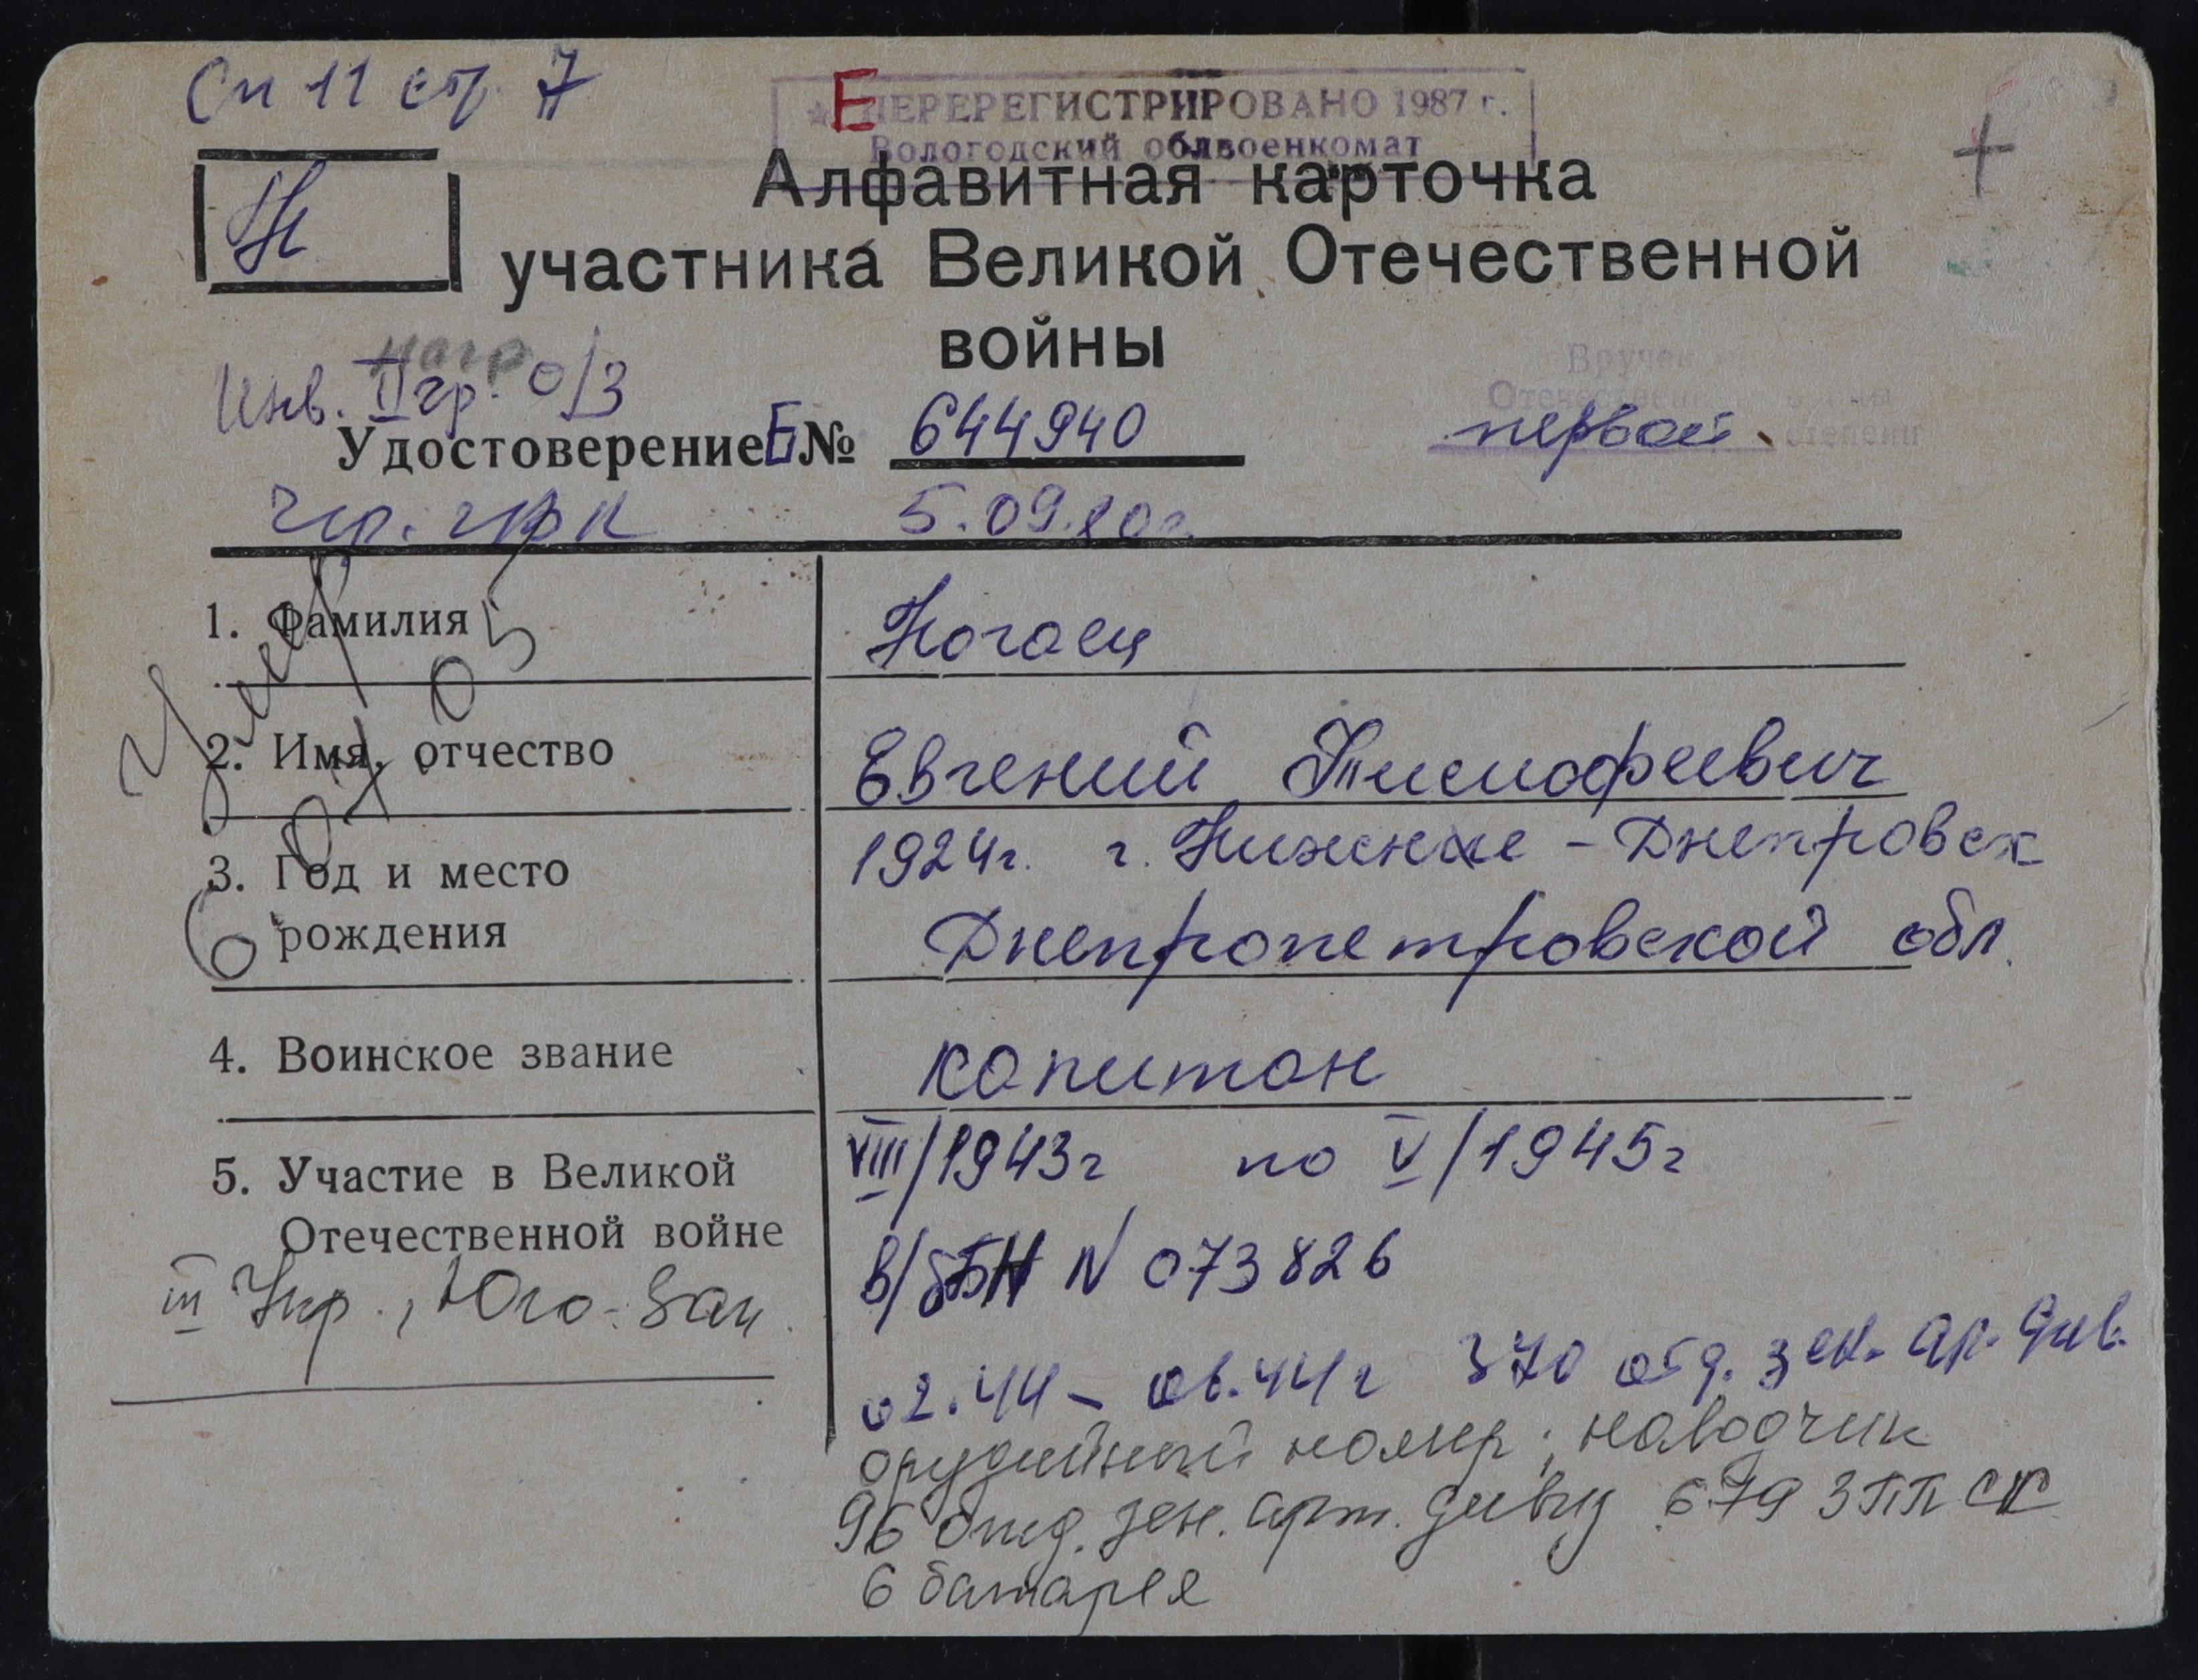 Сп 11 стр. 7
Е ПЕРЕРЕГИСТРИРОВАНО 1987 г.
Вологодский облвоенкомат
Н
Алфавитная карточка
участника Великой Отечественной
войны
нагр
Инв. II гр. о/з
Вручен
Отечественной войны
первой степени
Удостоверение Б № 644940
5.09.80г.
1. Фамилия
Ногаец
Умер
6 05
2. Имя, отчество
Евгений Тимофеевич
3. Год и место
рождения
1924г. г. Нижне-Днепровск
Днепропетровской обл.
4. Воинское звание
капитан
5. Участие в Великой
Отечественной войне
VIII/1943г по V/1945г
в/б БН N 073826
III Укр., Юго-Зап.
02.44 – 06.44г 370 отд. зен. ар. див.
орудийный номер, наводчик
96 отд. зен. арт. дивиз 679 ЗПП СК
6 батарея